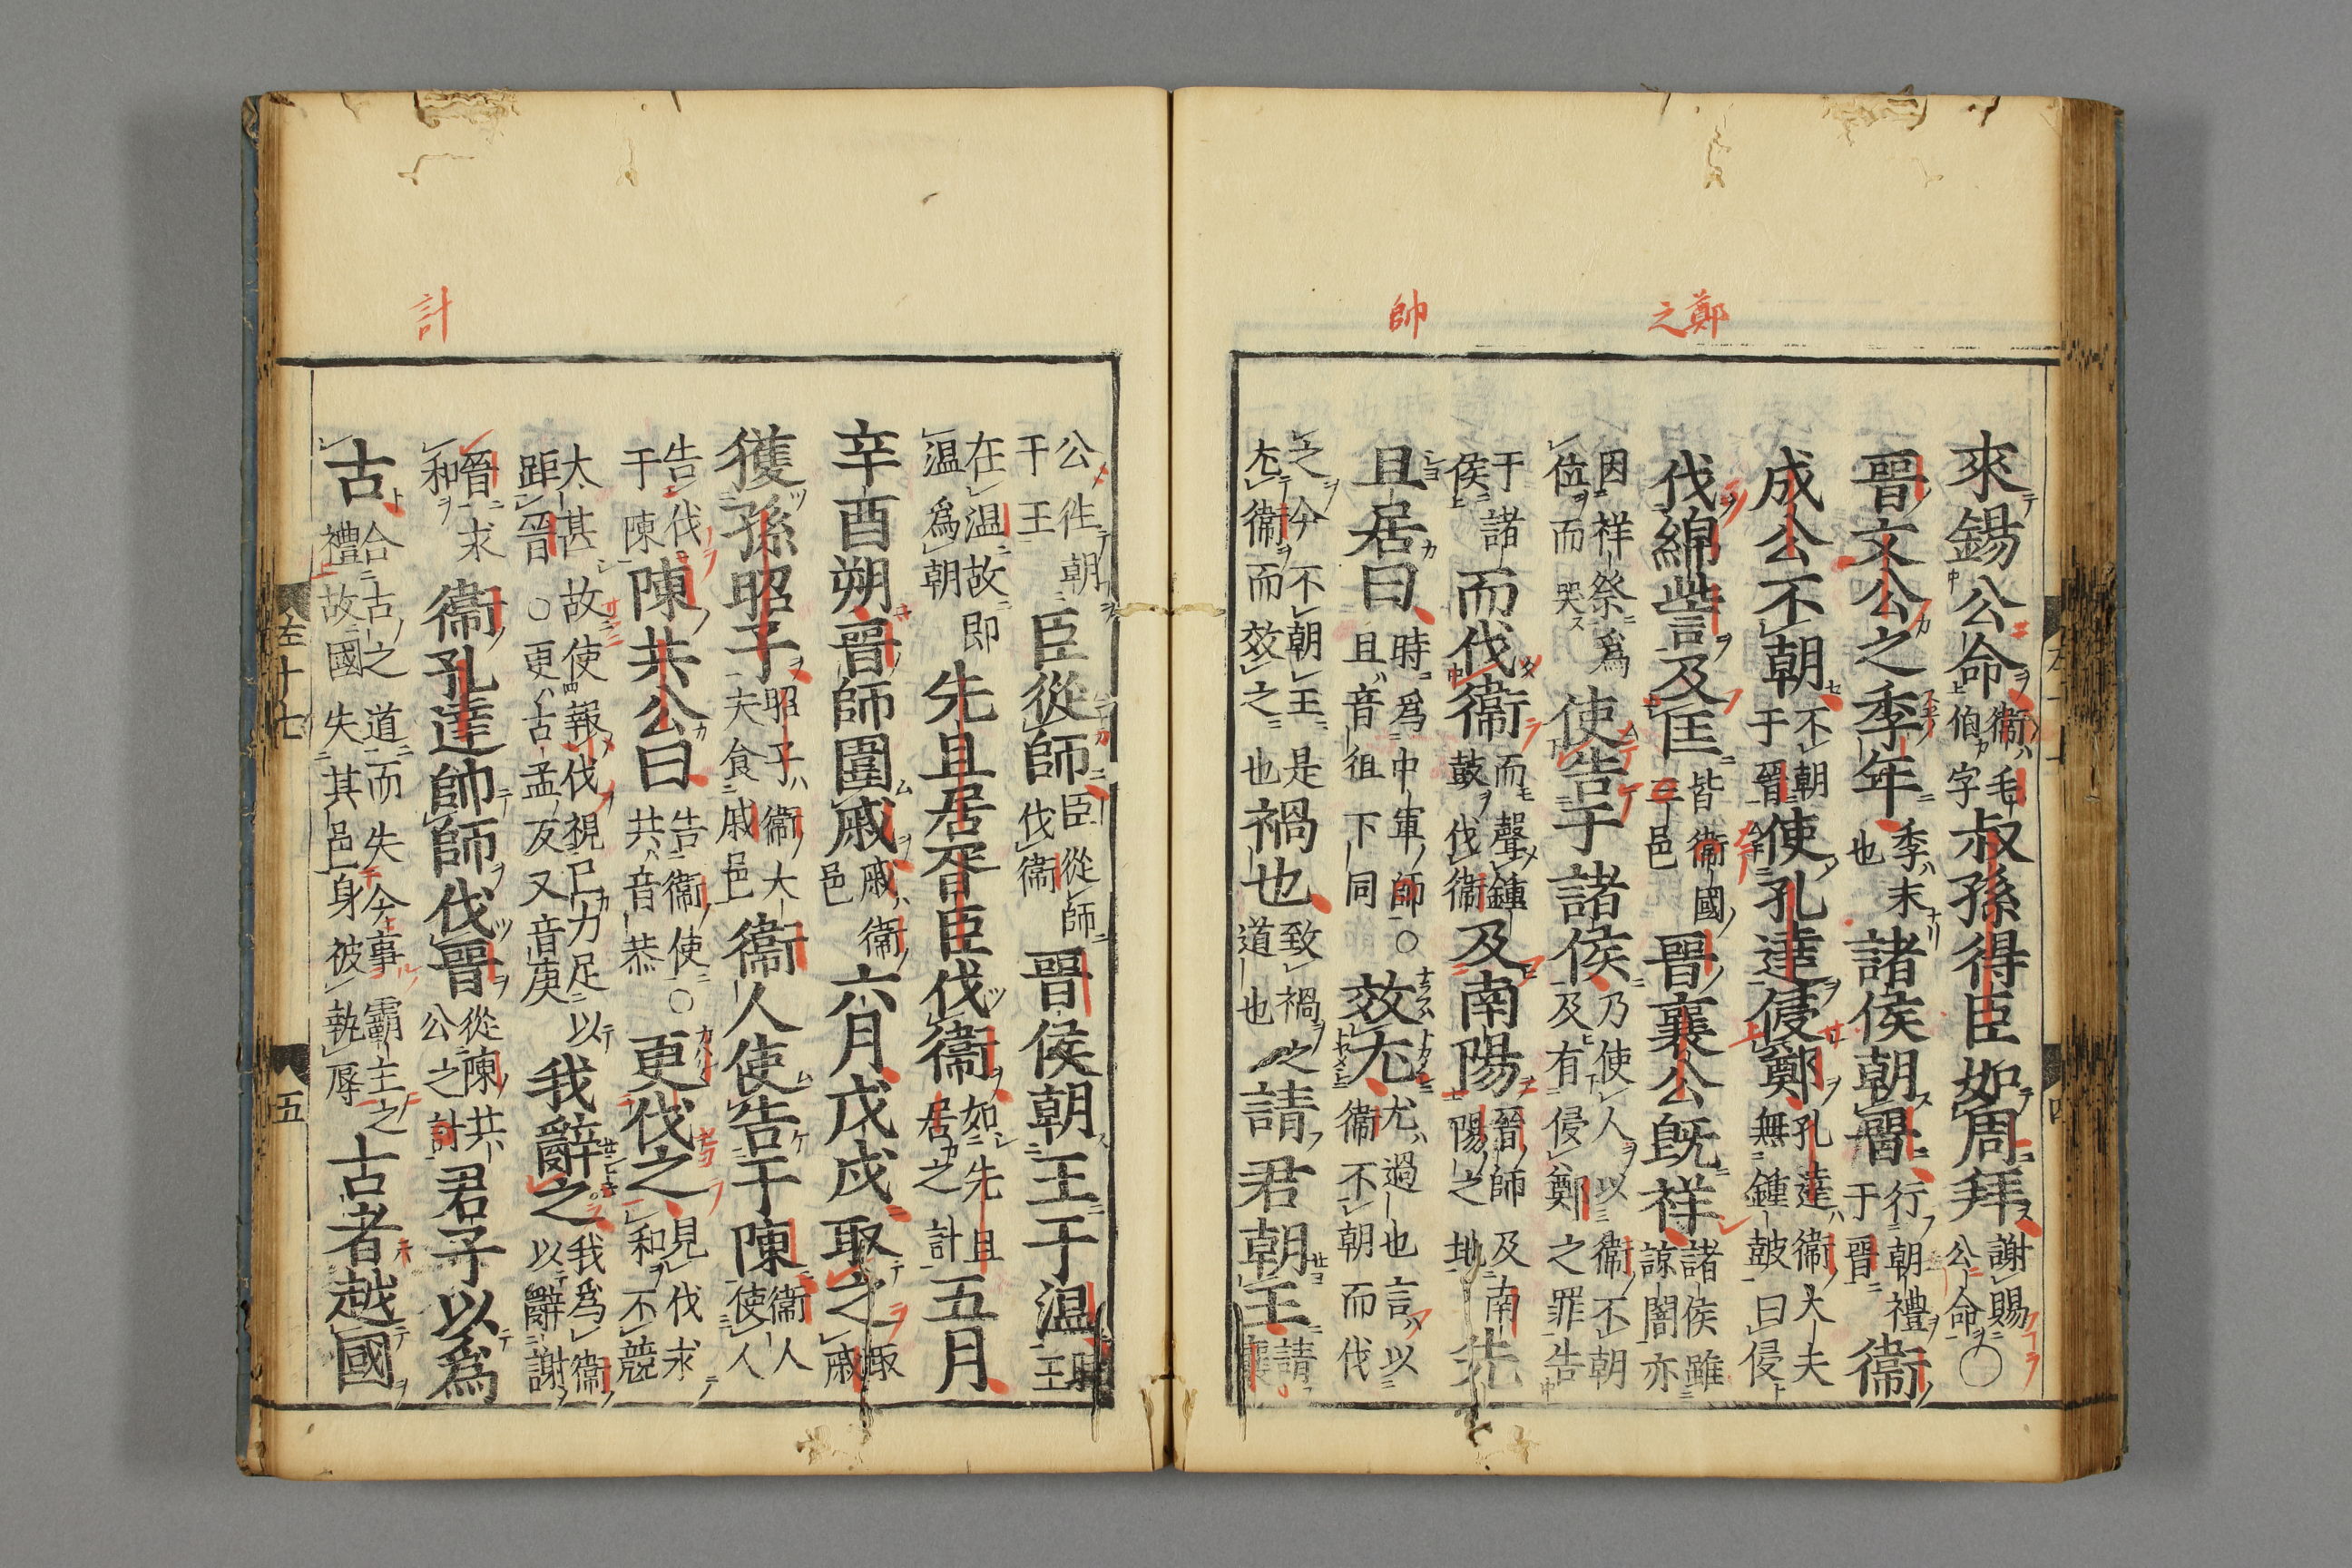 鄭之
帥
來錫公命衞毛伯字叔孫得臣如周拜謝賜公命〇
晉文公之季年季末也諸侯朝晉行朝禮于晉衞
成公不朝不朝于晉使孔達侵鄭孔達衞大夫無鍾鼓曰侵
伐緜訾及匡皆衞國二邑晉襄公既祥諸侯雖諒闇亦
因祥祭爲位而哭使告于諸侯乃使人以衞不朝及有侵鄭之罪告
于諸侯而伐衞而聲鍾鼓伐衞及南陽晉師及南陽之地先
且居曰時爲中軍師〇且音徂下同效尤尤過也言以衞不朝而伐
之今不朝王是尤衞而效之也禍也致禍之道也請君朝王請襄
公徃朝于王臣從師臣從師伐衞晉侯朝王于温王時
在温故即温爲朝先且居胥臣伐衞如先且居之計五月
辛酉朔晉師圍戚戚衞邑六月戊戌取之取戚
獲孫昭子昭子衞大夫食戚邑衞人使告于陳衞人使人
告伐于陳陳共公曰告衞使〇共音恭更伐之見伐求和不競
太甚故使報伐視己力足以距晉〇更古孟反又音庚我辭之我爲衞以辭謝
晉求和衞孔達帥師伐晉從陳共公之計君子以爲
古合古之道而失今事霸主之禮故國失其邑身被執辱古者越國
計
左十七
五